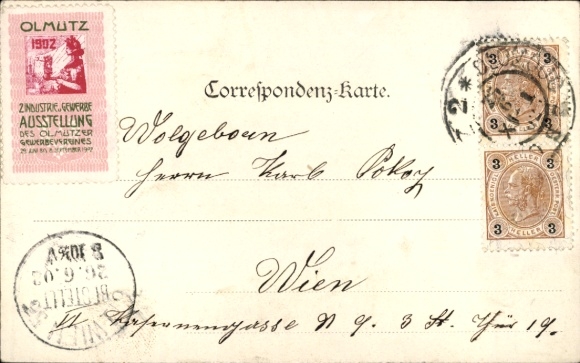 OLMÜTZ
1902
2. INDUSTRIE u. GEWERBE
AUSSTELLUNG
DES OLMÜTZER
GEWERBEVEREINES
Correspondenz-Karte.
Wolgeboren
Herrn Karl Pokoy
Wien
VI Kasernengasse N 9. 3 St. Thür 19.
3 3
3 3
HELLER
3 3
HELLER
WIEN
BESTELLT
26.6.02